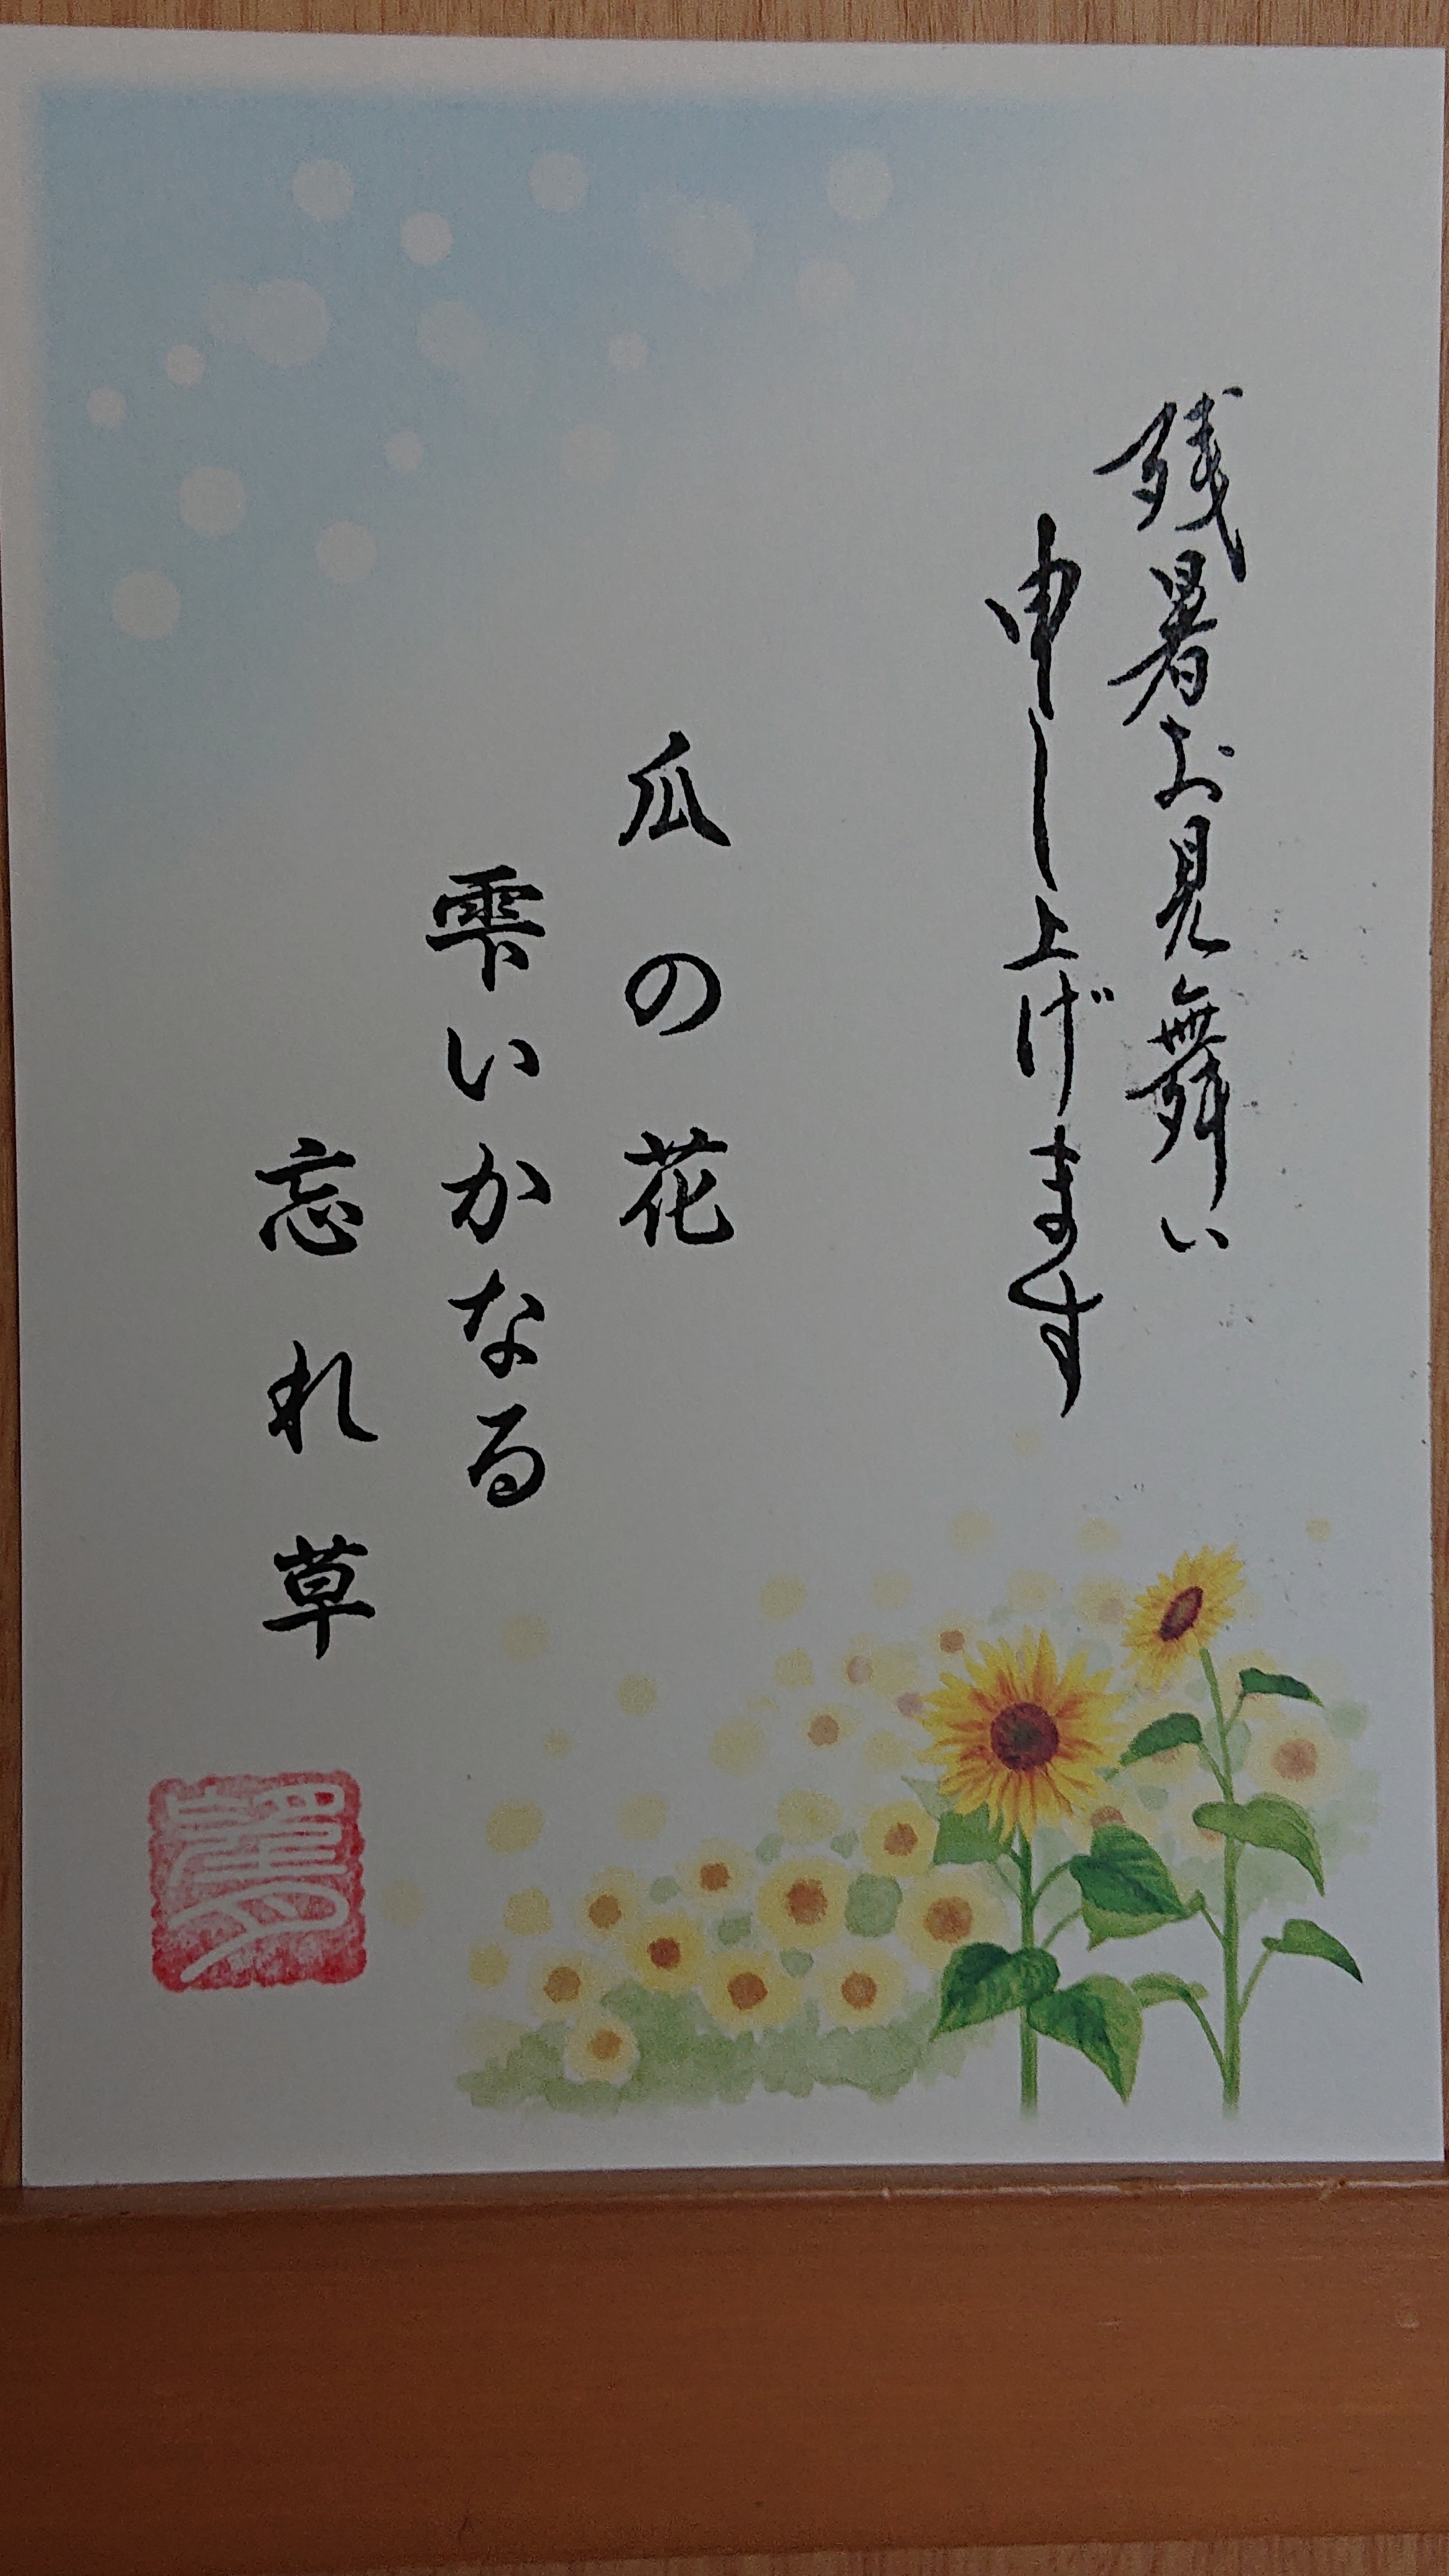 残暑お見舞い
申し上げます
瓜の花
雫いかなる
忘れ草